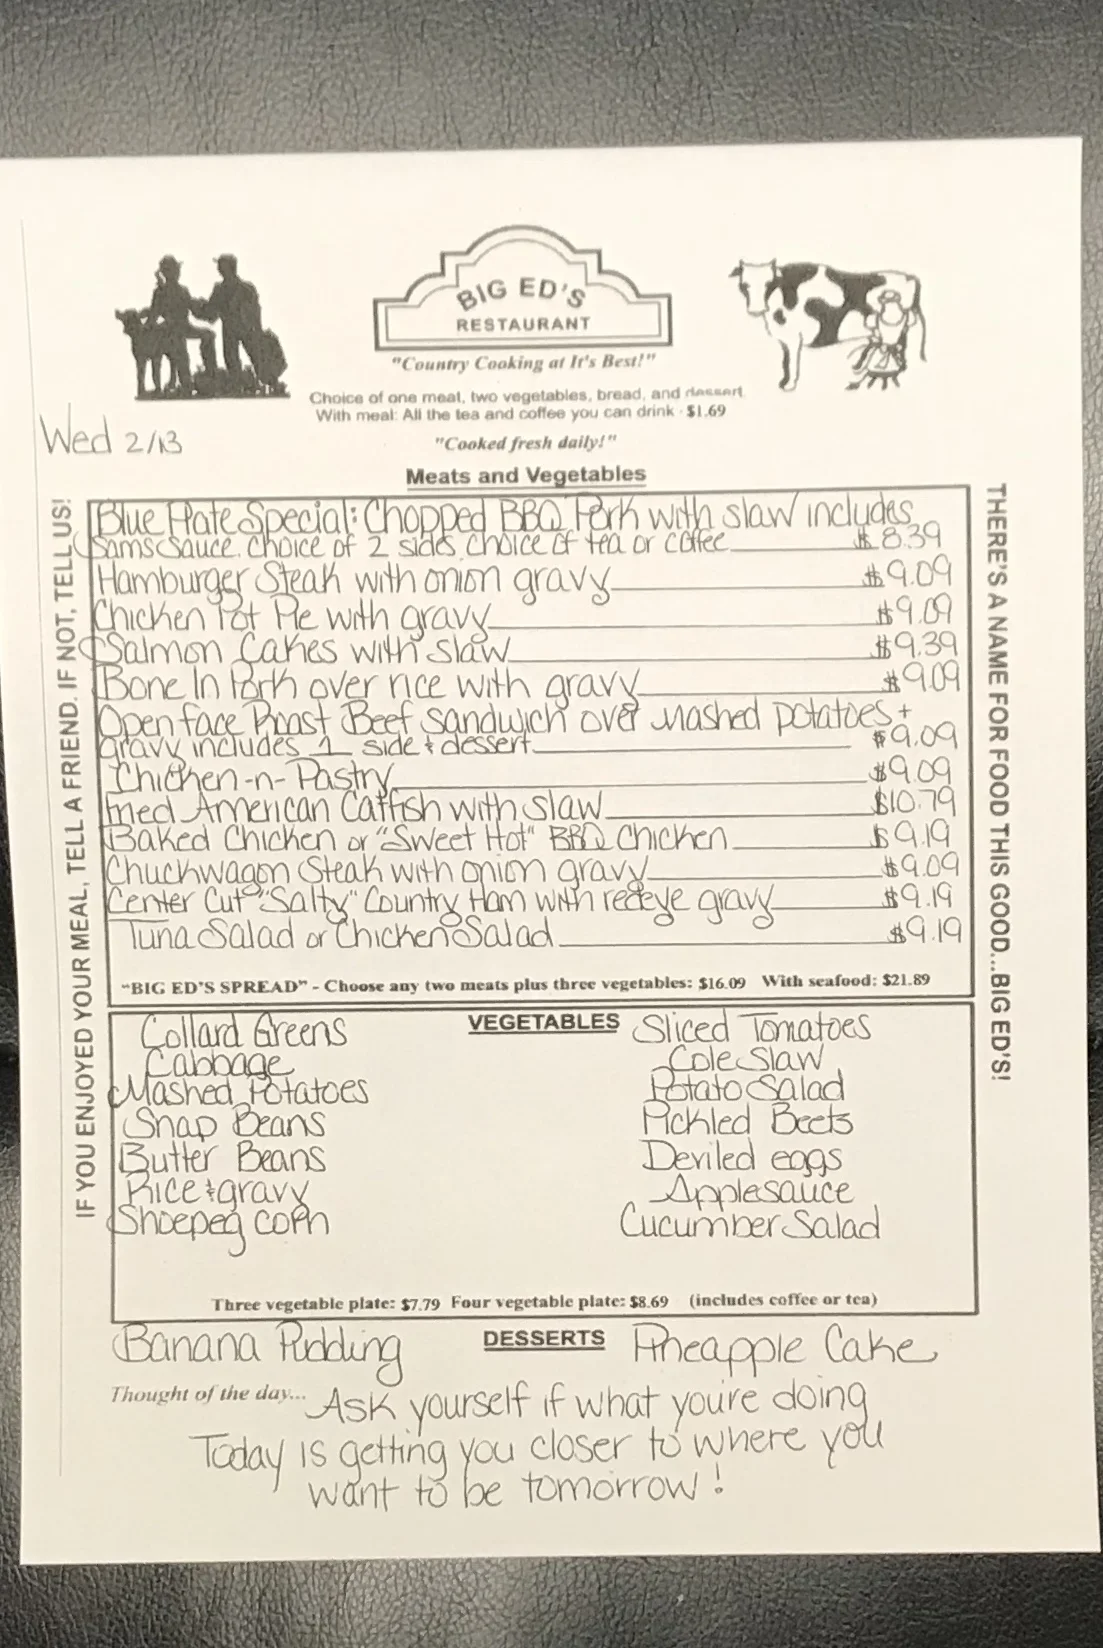 BIG ED'S
RESTAURANT
"Country Cooking at It's Best!"
Choice of one meat, two vegetables, bread, and dessert
With meal: All the tea and coffee you can drink - $1.69
Wed 2/13
"Cooked fresh daily!"
Meats and Vegetables
IF YOU ENJOYED YOUR MEAL, TELL A FRIEND. IF NOT, TELL US!
Blue Plate Special: Chopped BBQ Pork with slaw includes
Sams Sauce, choice of 2 sides, choice of tea or coffee $8.39
Hamburger Steak with onion gravy $9.09
Chicken Pot Pie with gravy $9.09
Salmon Cakes with slaw $9.39
Bone In Pork over rice with gravy $9.09
Open face Roast Beef sandwich over mashed potatoes +
gravy includes 1 side & dessert $9.09
Chicken-n-Pastry $9.09
Fried American Catfish with slaw $10.79
Baked Chicken or "Sweet Hot" BBQ Chicken $9.19
Chuckwagon Steak with onion gravy $9.09
Center Cut "Salty" Country Ham with redeye gravy $9.19
Tuna Salad or Chicken Salad $9.19
"BIG ED'S SPREAD" - Choose any two meats plus three vegetables: $16.09 With seafood: $21.89
THERE'S A NAME FOR FOOD THIS GOOD...BIG ED'S!
VEGETABLES
Collard Greens
Cabbage
Mashed Potatoes
Snap Beans
Butter Beans
Rice & gravy
Shoepeg corn
Sliced Tomatoes
Cole Slaw
Potato Salad
Pickled Beets
Deviled eggs
Applesauce
Cucumber Salad
Three vegetable plate: $7.79 Four vegetable plate: $8.69 (includes coffee or tea)
Banana Pudding DESSERTS Pineapple Cake
Thought of the day... Ask yourself if what you're doing
Today is getting you closer to where you
want to be tomorrow!